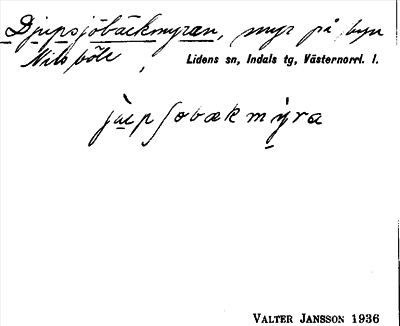 Djupsjöbäckmyran, myr på byn
Nilsböle, Lidens sn, Indals tg, Västernorrl. l.
jùpʃobækmỳra
VALTER JANSSON 1936